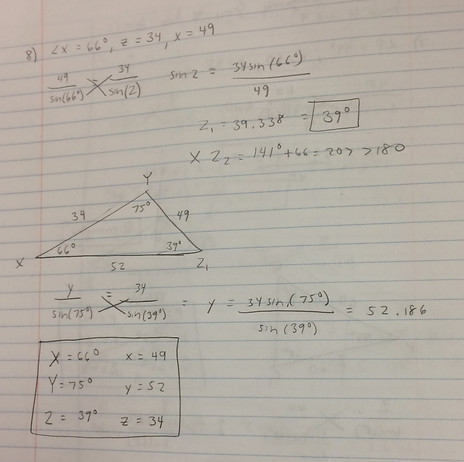 8) ∠x = 66°, z = 34, x = 49
49/sin(66°) = 34/sin(Z) sin Z = 34sin(66°)/49
Z₁ = 39.338 = 39°
X Z₂ = 141° + 66 = 207 > 180
Y
34 75° 49
66° 39°
X 52 Z₁
y/sin(75°) = 34/sin(39°) = y = 34sin(75°)/sin(39°) = 52.186
X = 66° x = 49
Y = 75° y = 52
Z = 39° z = 34